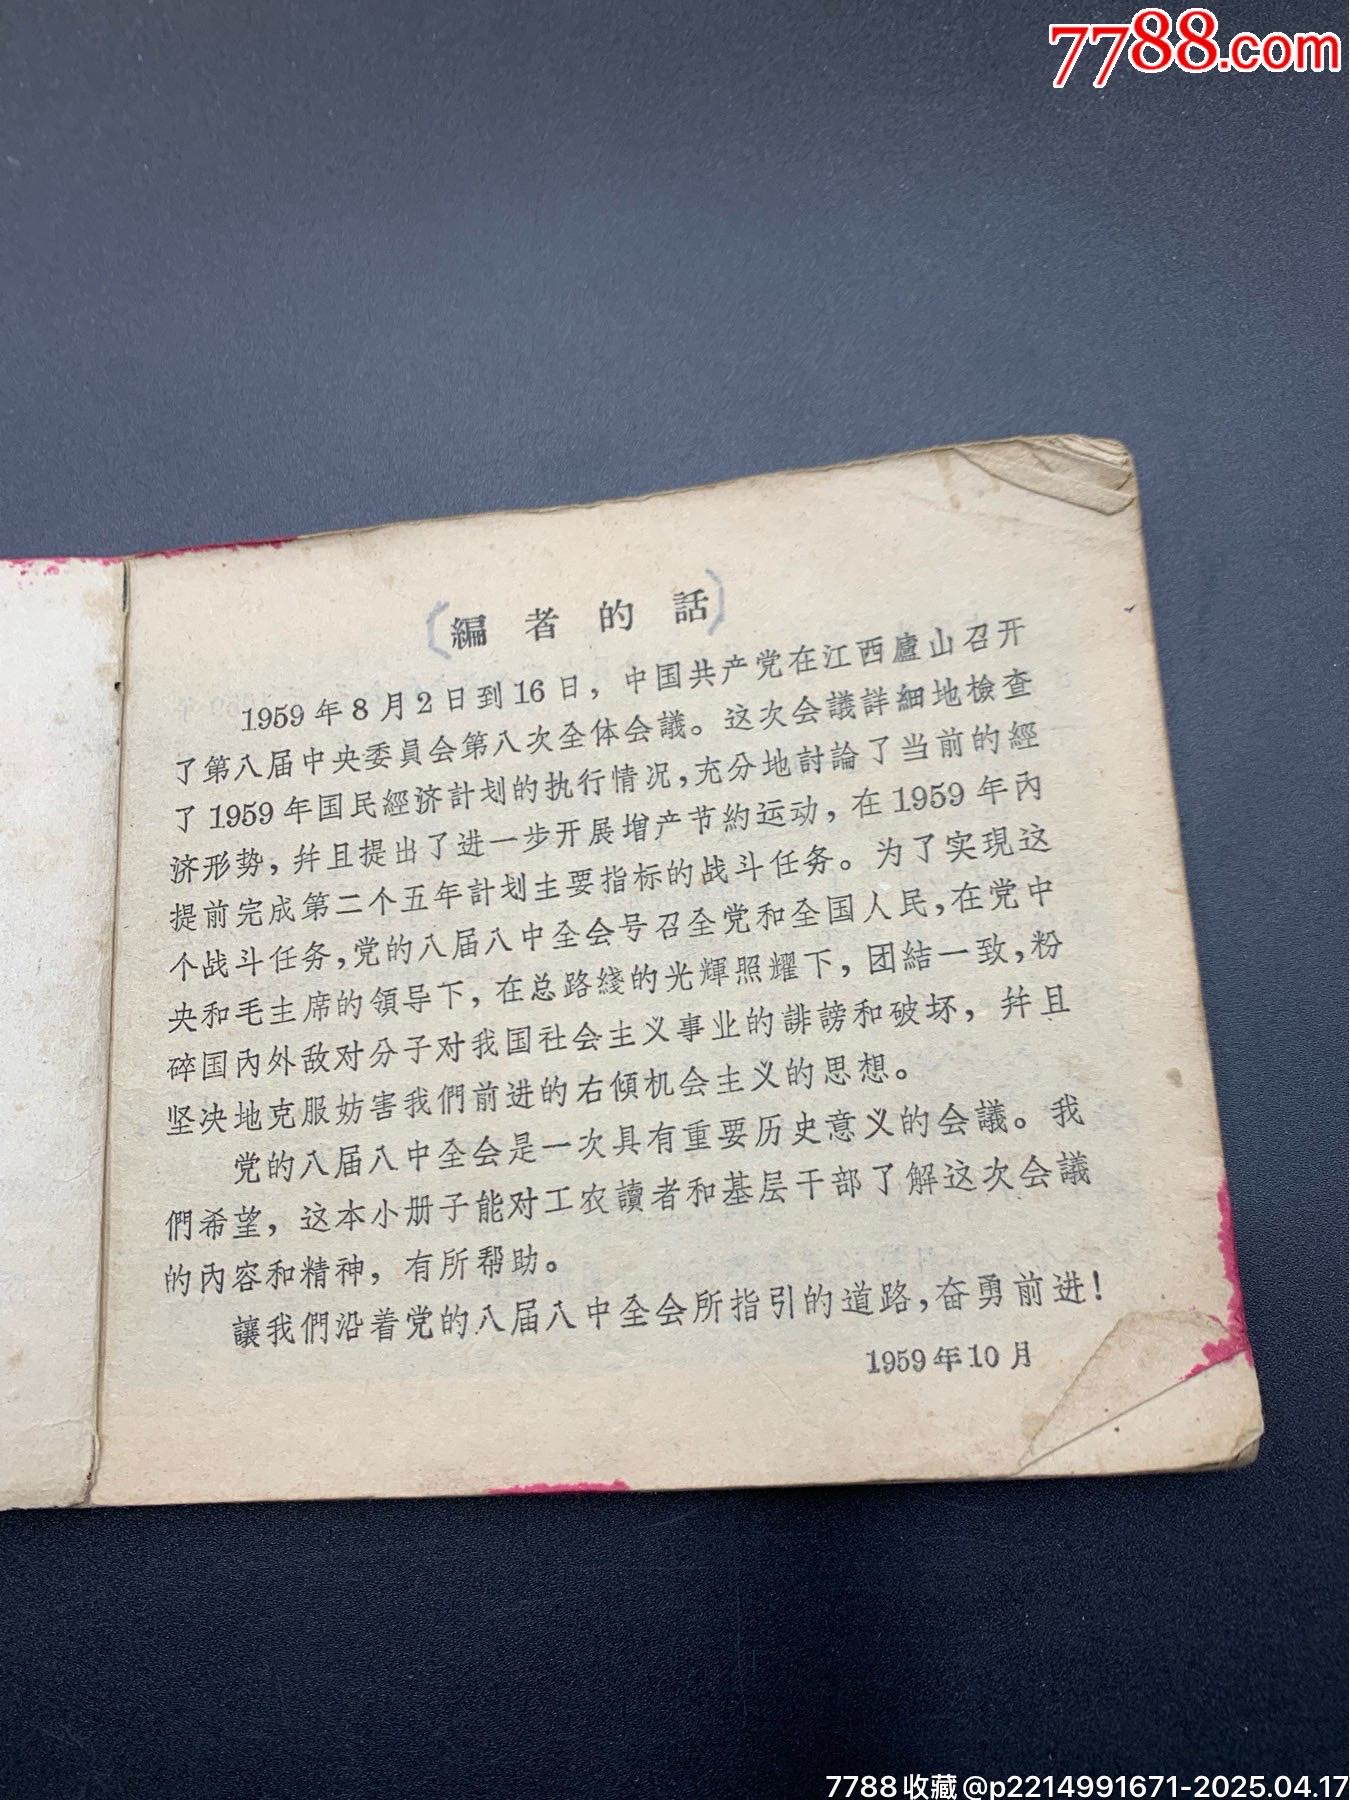 7788.com
編者的話
1959年8月2日到16日，中国共产党在江西廬山召开
了第八届中央委員会第八次全体会議。这次会議詳細地檢查
了1959年国民經济計划的执行情况，充分地討論了当前的經
济形势，幷且提出了进一步开展增产节約运动，在1959年內
提前完成第二个五年計划主要指标的战斗任务。为了实現这
个战斗任务，党的八届八中全会号召全党和全国人民，在党中
央和毛主席的領导下，在总路綫的光輝照耀下，团結一致，粉
碎国內外敌对分子对我国社会主义事业的誹謗和破坏，幷且
坚决地克服妨害我們前进的右傾机会主义的思想。
党的八届八中全会是一次具有重要历史意义的会議。我
們希望，这本小册子能对工农讀者和基层干部了解这次会議
的內容和精神，有所帮助。
讓我們沿着党的八届八中全会所指引的道路，奋勇前进！
1959年10月
7788收藏@p2214991671-2025.04.17